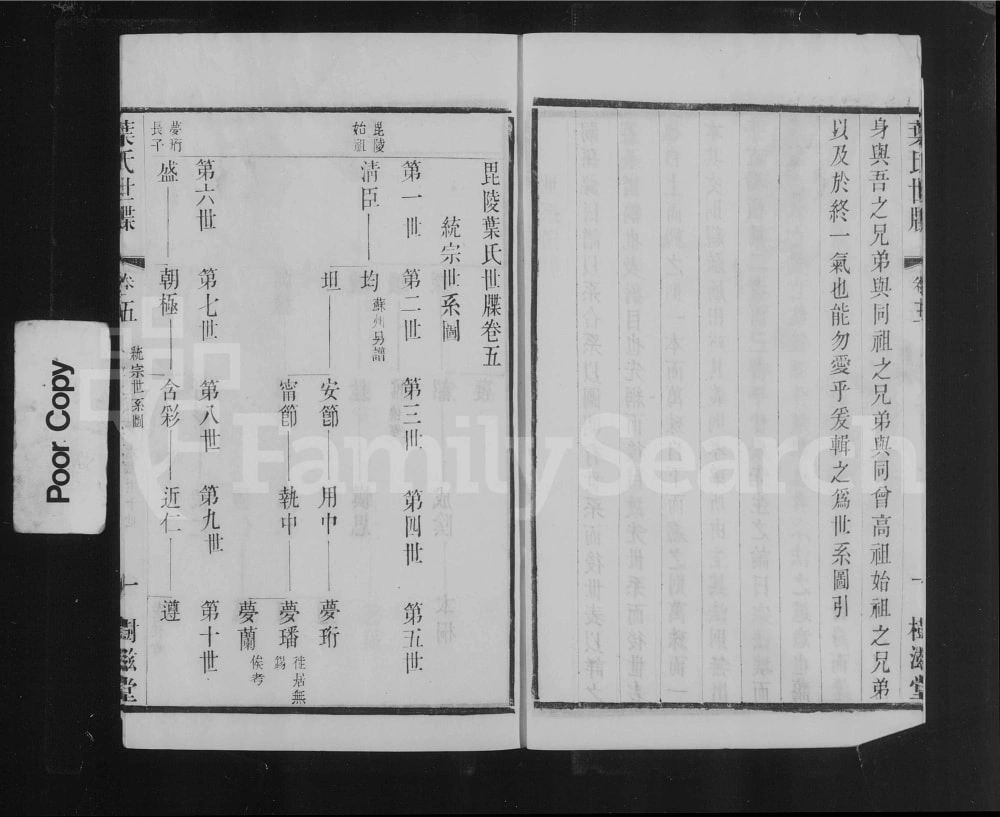 葉氏世牒
卷五
一
樹滋堂
身與吾之兄弟與同祖之兄弟與同曾高祖始祖之兄弟
以及於終一氣也能勿愛乎爰輯之爲世系圖引
毘陵葉氏世牒卷五
統宗世系圖
第一世 第二世 第三世 第四世 第五世
毘陵始祖
清臣 均 蘇州另譜
坦 安節 用中 夢珩
甯節 執中 夢璠 徙居無錫
夢蘭 俟考
第六世 第七世 第八世 第九世 第十世
夢珩長子
盛 朝極 含彩 近仁 遵
葉氏世牒
卷五
統宗世系圖
一
樹滋堂
Poor Copy
FamilySearch